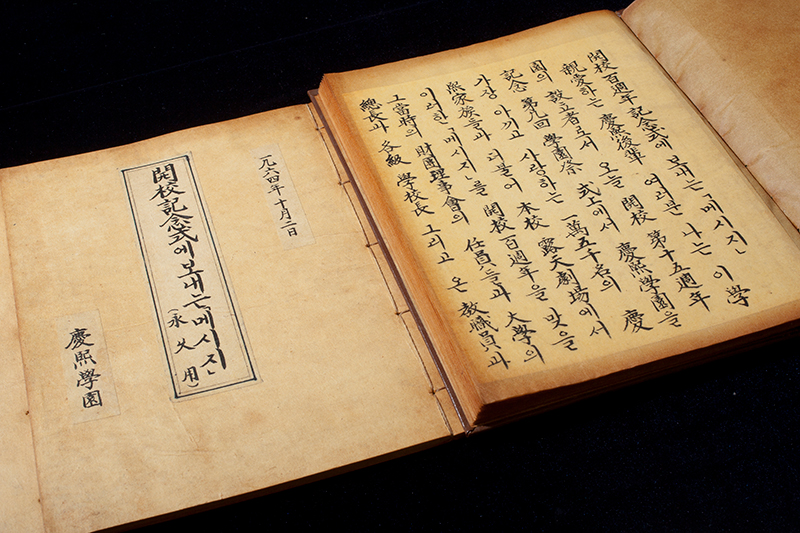 一九六四年 十月二日
開校記念式에 보내는「메시지」
(永久用)
慶熙學園
開校百週年 記念式에 보내는「메시지」
親愛하는 慶熙後輩 여러분 나는 이 學
園의 設立者로서 오늘 開校 第十五週年
記念 第九回 學園祭 式上에서 慶熙學園을
가장 아끼고 사랑하는 一萬五千名의 慶
熙家族들과 더불어 本校 露天劇場에서
이러한「메시지」를 開校百週年을 맞을
그 當時의 財團理事會의 任員들과 大學의
總長과 各級 學校長 그리고 온 敎職員과